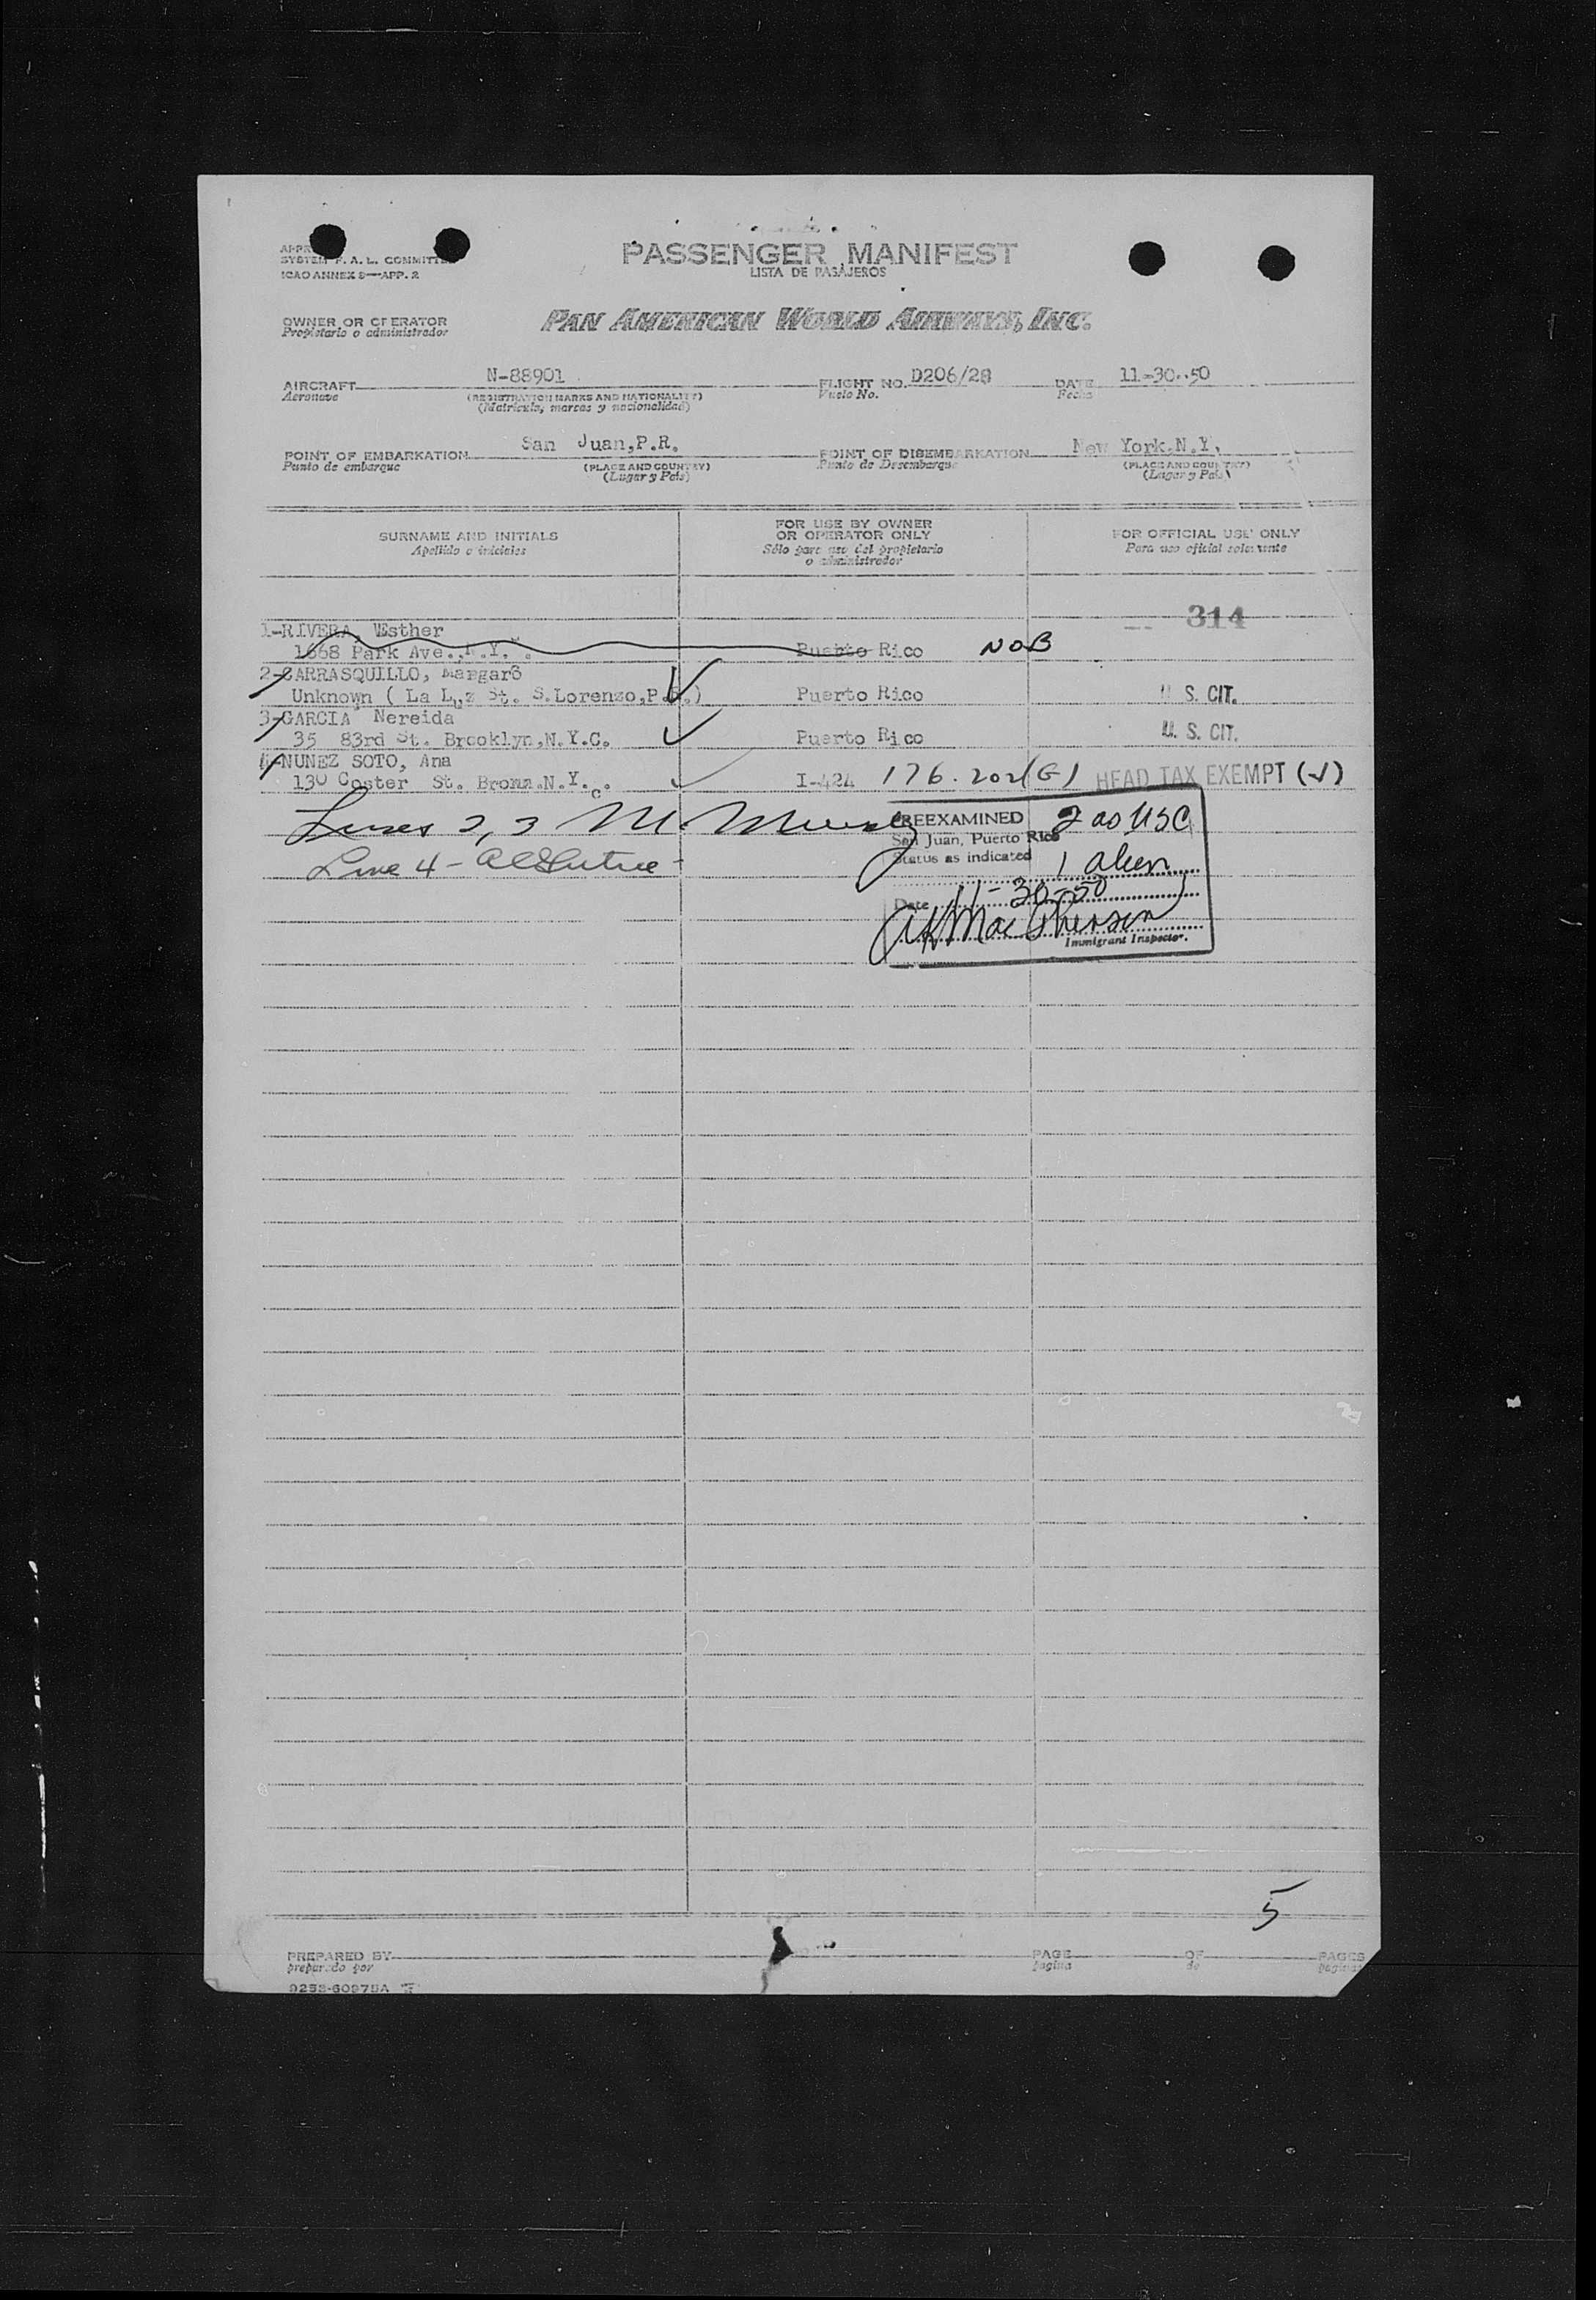 PASSENGER MANIFEST
LISTA DE PASAJEROS
SYSTEM F. A. L. COMMITTEE
ICAO ANNEX 9—APP. 2
OWNER OR OPERATOR
Propietario o administrador
PAN AMERICAN WORLD AIRWAYS, INC.
AIRCRAFT N-88901 FLIGHT NO. D206/28 DATE 11-30-50
Aeronave (REGISTRATION MARKS AND NATIONALITY) Vuelo No. Fecha
(Matrícula, marcas y nacionalidad)
POINT OF EMBARKATION San Juan,P.R. POINT OF DISEMBARKATION New York.N.Y.
Punto de embarque (PLACE AND COUNTRY) Punto de Desembarque (PLACE AND COUNTRY)
(Lugar y País) (Lugar y País)
SURNAME AND INITIALS FOR USE BY OWNER OR OPERATOR ONLY FOR OFFICIAL USE ONLY
Apellido e iniciales Sólo para uso del propietario o administrador Para uso oficial solamente
314
1-RIVERA, Esther
1668 Park Ave.,N.Y. Puerto Rico NOB
2-CARRASQUILLO, Margaro
Unknown ( La Luz St. S.Lorenzo,P.R.) Puerto Rico U. S. CIT.
3-GARCIA Nereida
35 83rd St. Brooklyn,N.Y.C. Puerto Rico U. S. CIT.
4-NUNEZ SOTO, Ana
130 Coster St. Bronx.N.Y.C. I-424 176.202(G) HEAD TAX EXEMPT (✓)
Lines 2, 3 M.
Line 4 -
PREEXAMINED 2 as USC
San Juan, Puerto Rico
Status as indicated 1 alien
Date 11-30-50
MacPherson
Immigrant Inspector.
5
PREPARED BY PAGE OF PAGES
preparado por pagina de paginas
9252-60975A